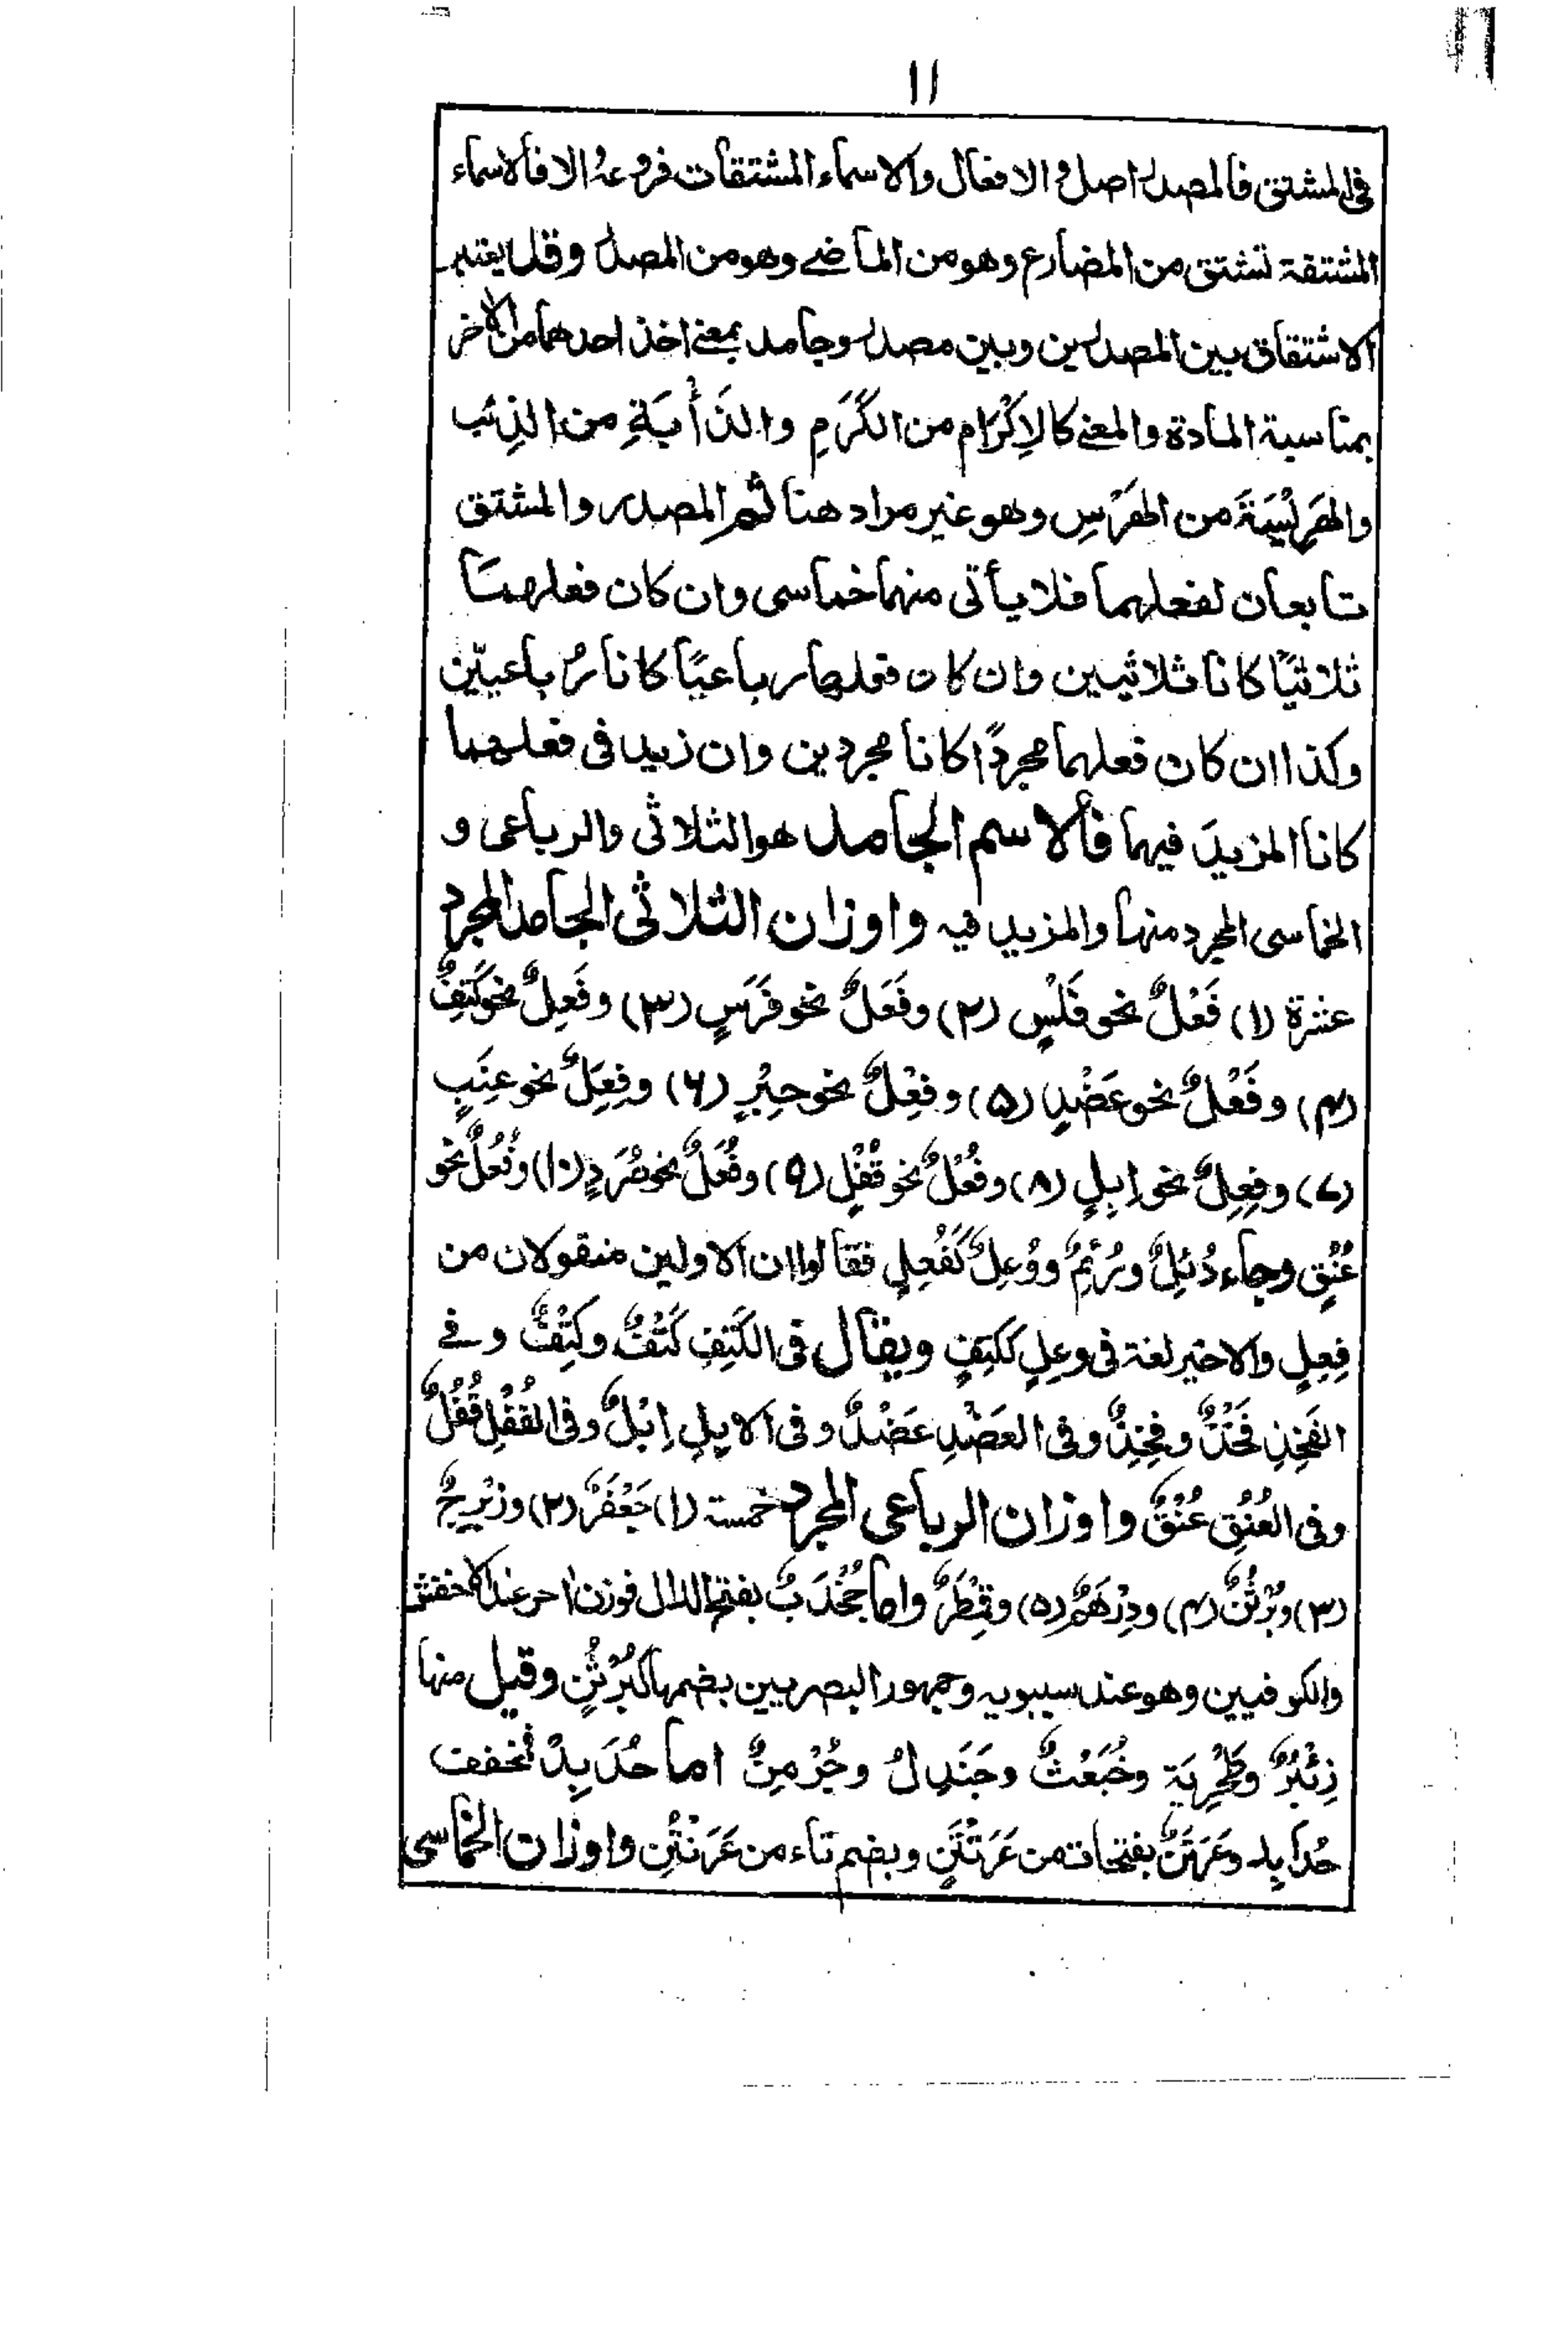 ١١
فى المشتق فالمصدر اصل والافعال والاسماء المشتقات فروعه والا فالاسماء
المشتقة تشتق من المضارع وهو من الماضے وهو من المصدر وقد يعتبر
الاشتقاق بين المصدرين وبين مصدر وجامد بمعنے اخذ احدهما من الاٰخر
بمناسبة المادة والمعنے كالاِكْرَام من الكَرَمِ والذَأْبَةِ من الذِئب
والهَرِيْسَةَ من الهَرَسِ وهو غير مراد هنا ثم المصدر والمشتق
تابعان لفعلهما فلا يأتى منهما خماسى وان كان فعلهما
ثلاثيًا كانا ثلاثيين وان كان فعلهما رباعيًا كانا رُباعيّين
وكذا ان كان فعلهما مجردًا كانا مجردين وان زيد فى فعلهما
كانا المزيدَ فيهما فألاسم الجامد هو الثلاثى والرباعى و
الخماسى المجرد منها والمزيد فيه واوزان الثلاثى الجامد المجرد
عشرة (١) فَعْلٌ نحو فَلْسٍ (٢) وفَعَلٌ نحو فَرَسٍ (٣) وفَعِلٌ نحو كَتِفٍ
(۴) وفَعُلٌ نحو عَضُدٍ (۵) وفِعْلٌ نحو حِبْرٍ (۶) وفِعَلٌ نحو عِنَبٍ
(٧) وفِعِلٌ نحو اِبِلٍ (٨) وفُعْلٌ نحو قُفْلٍ (٩) وفُعَلٌ نحو صُرَدٍ (١٠) وفُعُلٌ نحو
عُنُقٍ وجاء دُئِلٌ ورُئِمٌ ووُعِلٌ كَفُعِلٍ فقالوا ان الاولين منقولان من
فُعِلٍ والاخير لغة فى وعِلٍ ككَتِفٍ ويقال فى الكَتِفِ كَتْفٌ وكِتْفٌ وفے
الفَخِذِ فَخْذٌ وفِخِذٌ وفى العَضُدِ عَضْدٌ وفى الابِلِ اِبْلٌ وفى القُفْلِ قُفُلٌ
وفى العُنُقِ عُنْقٌ واوزان الرباعى المجرد خمسة (١) جَعْفَرٌ (٢) وزِبْرِجٌ
(٣) وبُرْثُنٌ (۴) ودِرْهَمٌ (۵) وقِمَطْرٌ واما جُخْدَبٌ بفتح الدال فوزن اٰخر عند الاخفش
والكوفيين وهو عند سيبويه وجمهور البصريين بضمها كبُرْثُنٍ وقيل منها
زِئْبُرٌ وطَحْرِبَة وخُبَعْثٌ وجَنَدِلُ وجُرْمِنٌ اما حُدَبِدٌ فخففت
حُدَابِد وعَرَتَنٌ بفتحات من عَرَنْتَنٍ وبضم تاء من عَرَنْتُنٍ واوزان الخماسى